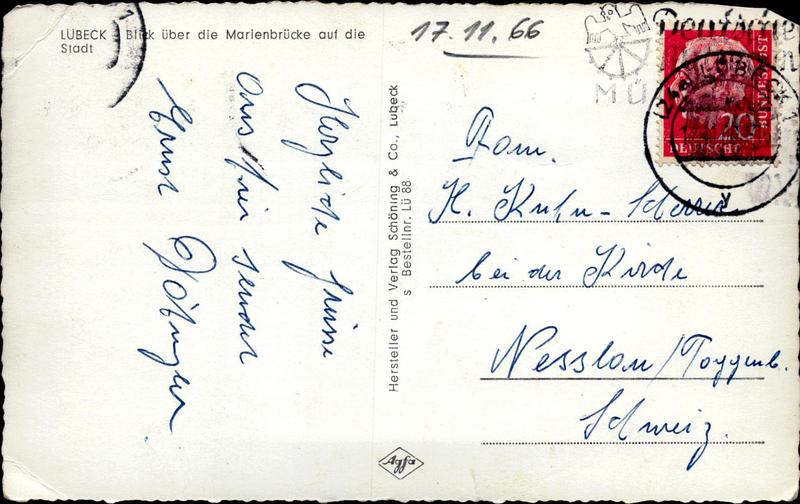 LÜBECK Blick über die Marienbrücke auf die
Stadt
17.11.66
Herzliche Grüsse
aus hier sendet
Ernst
Hersteller und Verlag Schöning & Co., Lubeck
s Bestellnr. Lü 88
Agfa
Deutsche
MÜ
LÜBECK 1
20
BUNDESPOST
DEUTSCHE
Fam.
H. Kuhn - Scherrer
bei der Kirche
Nesslau/Toggenb.
Schweiz.